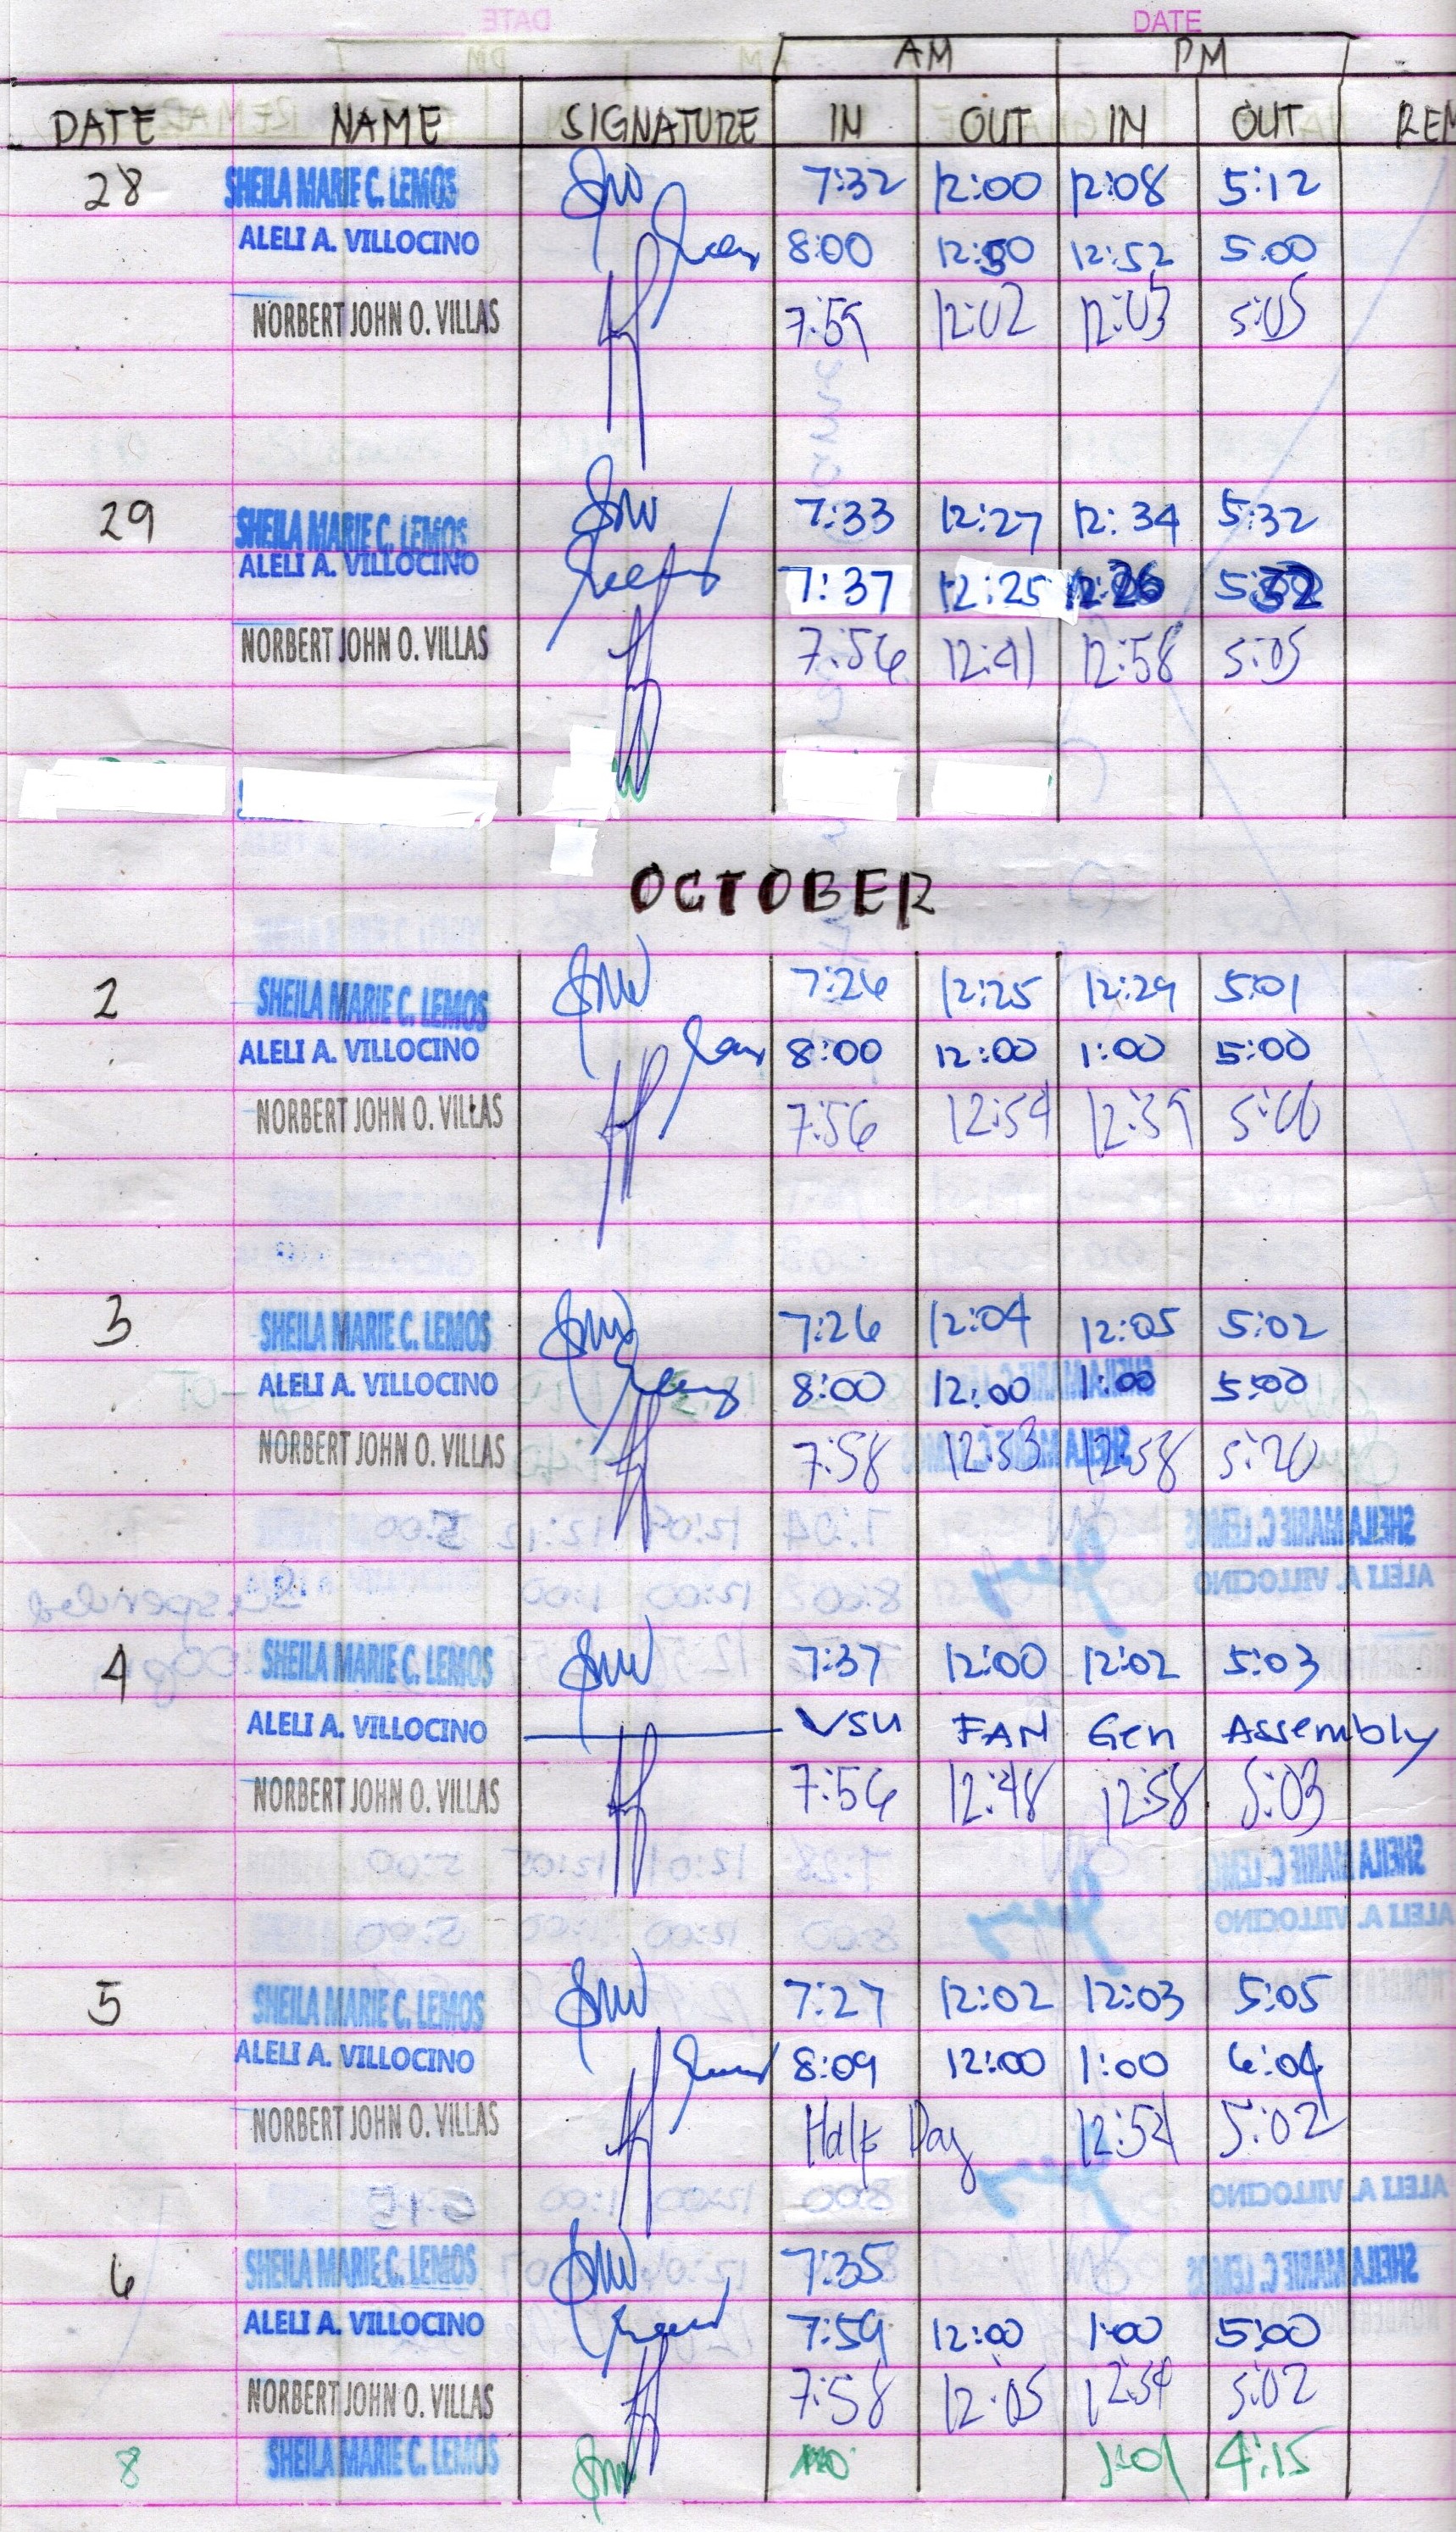 DATE
AM PM
DATE NAME SIGNATURE IN OUT IN OUT REM
28 SHEILA MARIE C. LEMOS 7:32 12:00 12:08 5:12
ALELI A. VILLOCINO 8:00 12:50 12:52 5:00
NORBERT JOHN O. VILLAS 7:59 12:02 12:03 5:05
29 SHEILA MARIE C. LEMOS 7:33 12:27 12:34 5:32
ALELI A. VILLOCINO 7:37 12:25 12:26 5:32
NORBERT JOHN O. VILLAS 7:56 12:41 12:58 5:05
OCTOBER
2 SHEILA MARIE C. LEMOS 7:26 12:25 12:29 5:01
ALELI A. VILLOCINO 8:00 12:00 1:00 5:00
NORBERT JOHN O. VILLAS 7:56 12:54 12:59 5:06
3 SHEILA MARIE C. LEMOS 7:26 12:04 12:05 5:02
ALELI A. VILLOCINO 8:00 12:00 1:00 5:00
NORBERT JOHN O. VILLAS 7:58 12:53 12:58 5:20
4 SHEILA MARIE C. LEMOS 7:37 12:00 12:02 5:03
ALELI A. VILLOCINO VSU FAN Gen Assembly
NORBERT JOHN O. VILLAS 7:56 12:48 12:58 5:03
5 SHEILA MARIE C. LEMOS 7:27 12:02 12:03 5:05
ALELI A. VILLOCINO 8:09 12:00 1:00 6:04
NORBERT JOHN O. VILLAS Half Day 12:54 5:02
6 SHEILA MARIE C. LEMOS 7:35
ALELI A. VILLOCINO 7:59 12:00 1:00 5:00
NORBERT JOHN O. VILLAS 7:58 12:05 12:59 5:02
8 SHEILA MARIE C. LEMOS 1:01 4:15